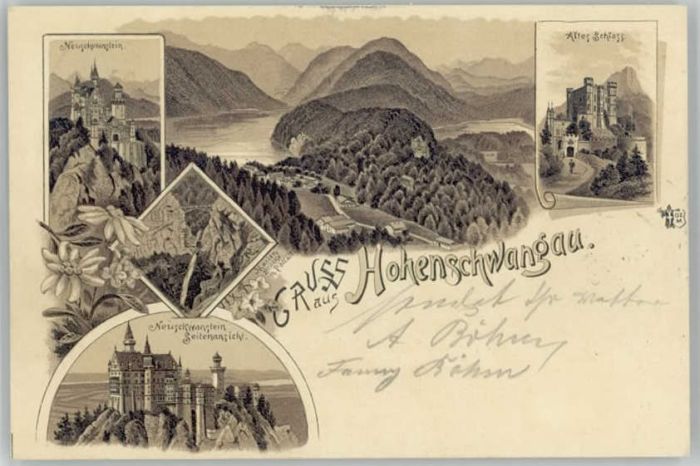 Neuschwanstein.
Altes Schloss
Gruss
aus Hohenschwangau.
Neuschwanstein
Seitenansicht.
sendet Ihr
A. Böhm
Fanny Böhm